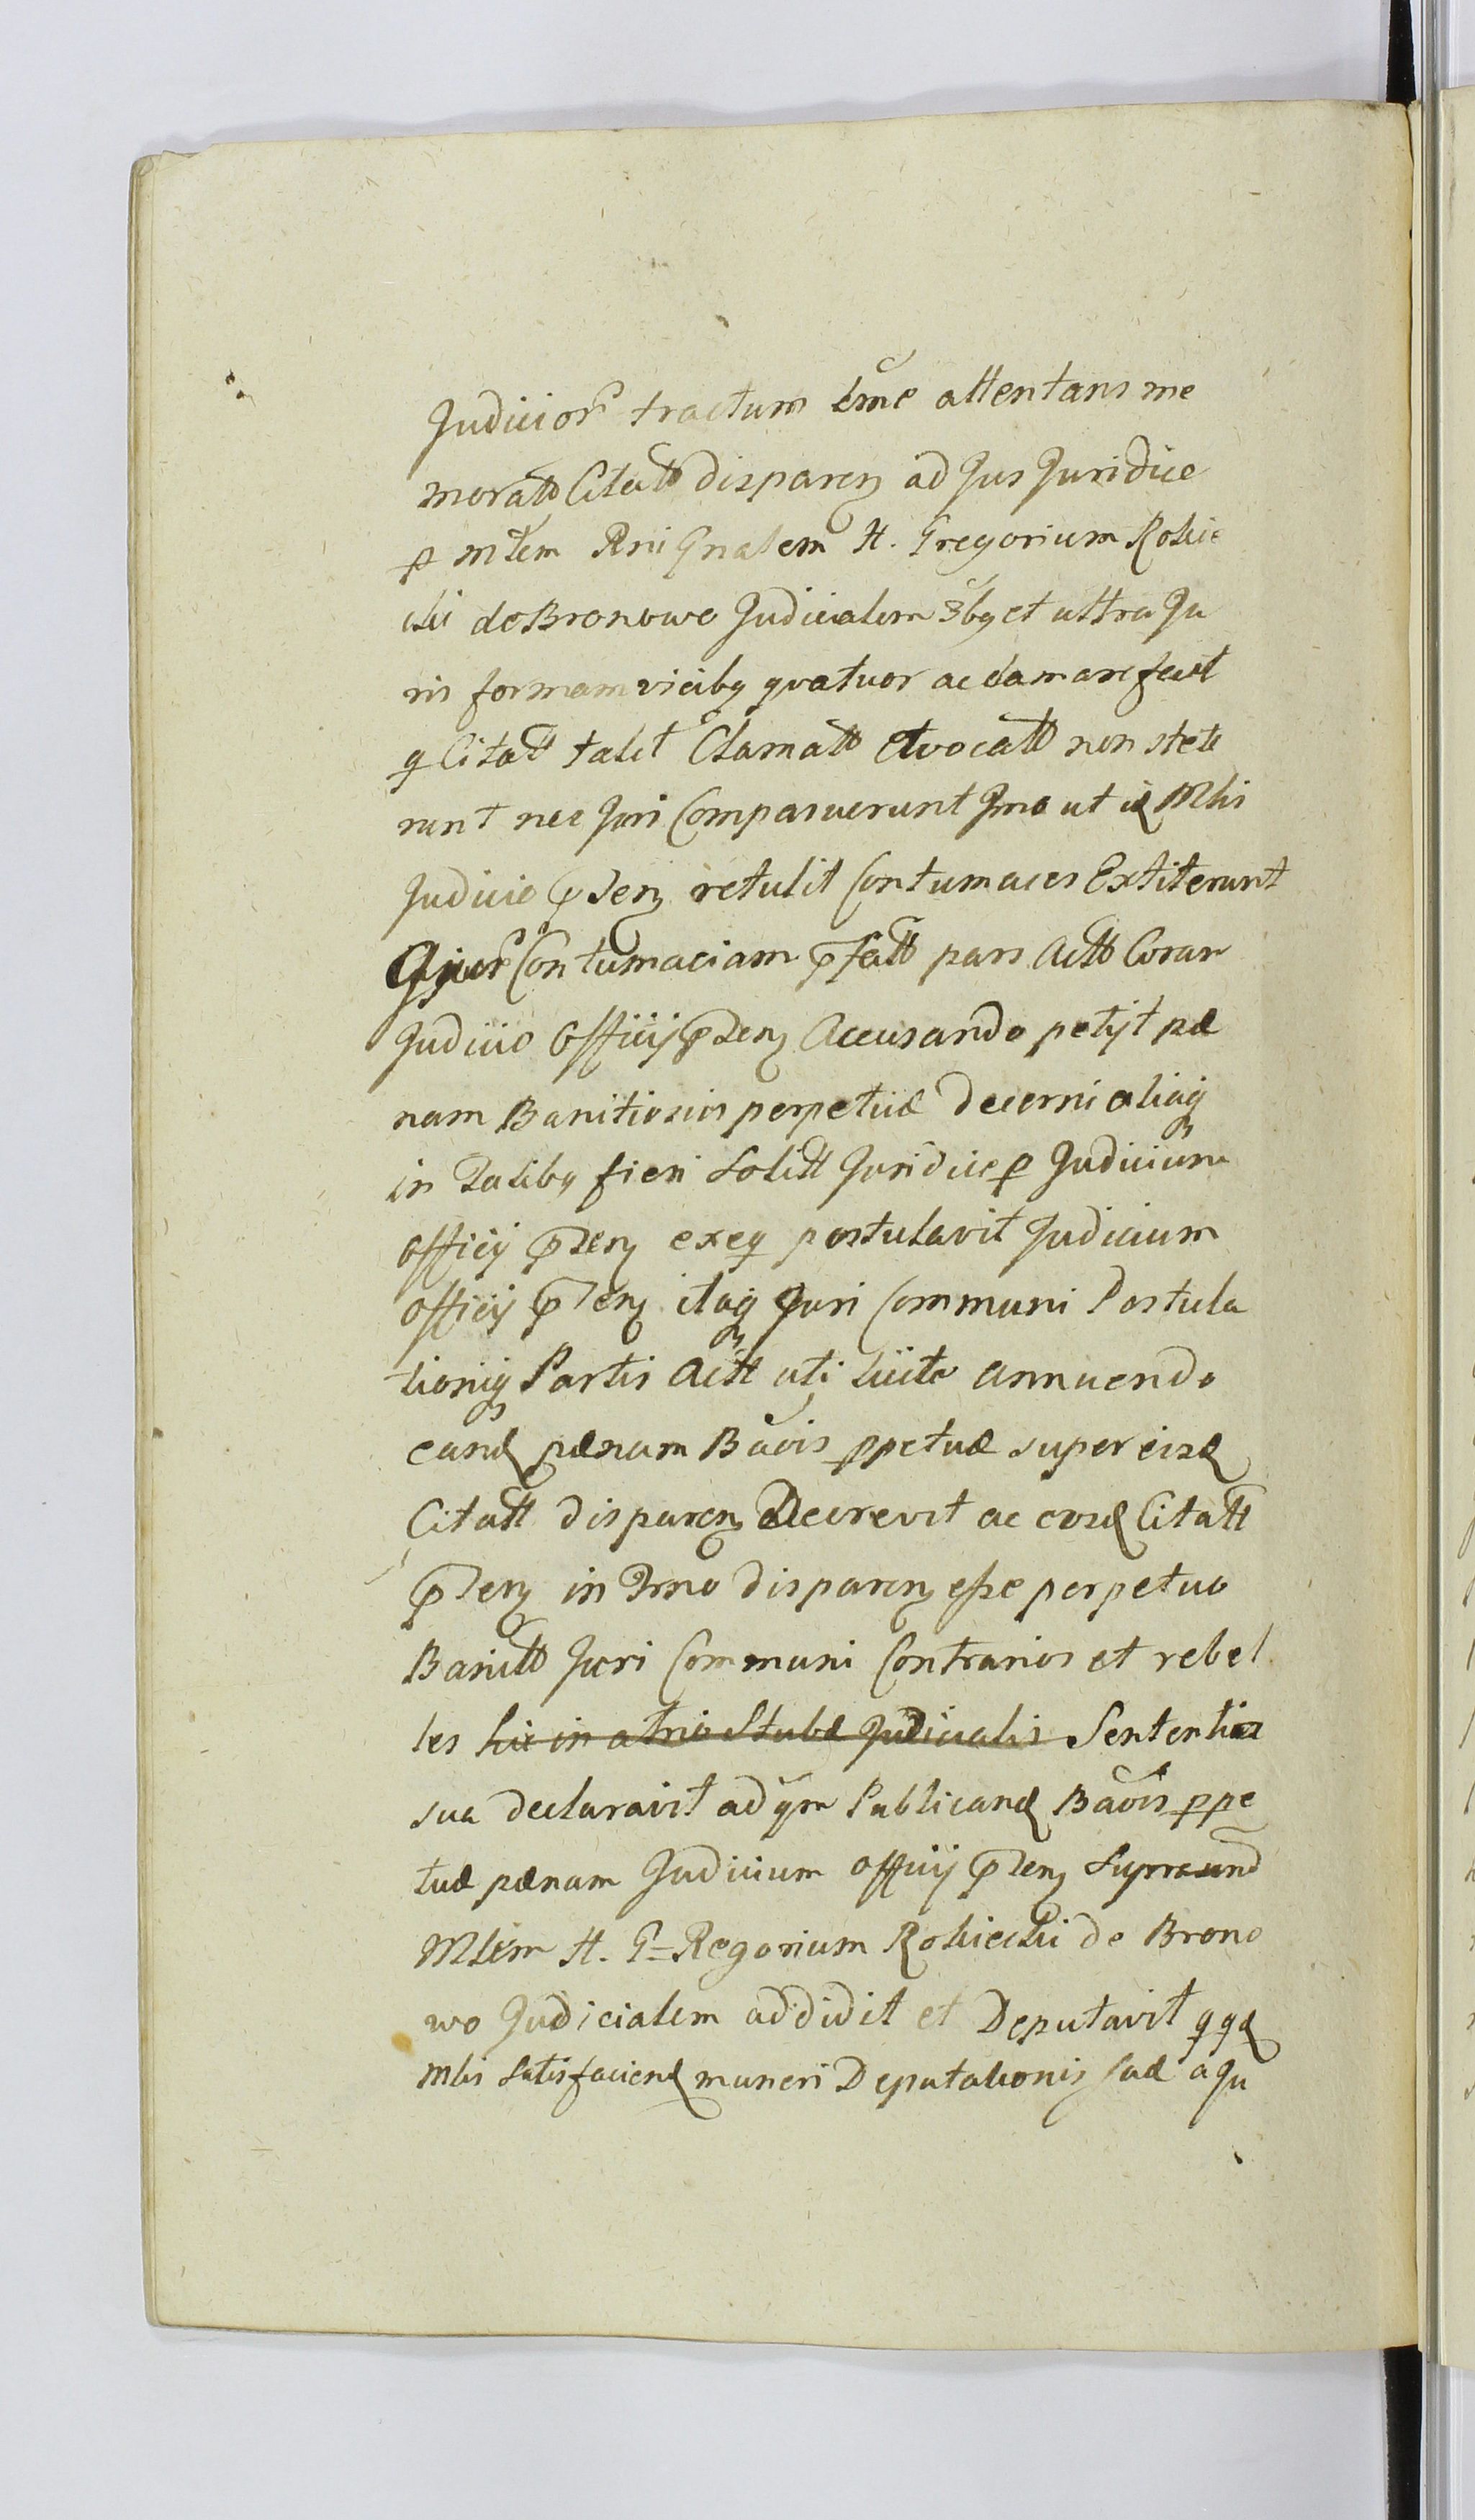 Judicior tractum ĺme attentans me
moratt Citatt disparen ad Jus Juridice
p Mlem Rni Gnalem H. Gregorium Rokic
cki de Bronowo Judicialem 3bq et ultra Ju
ris formam vicibq quatuor acclamare fecit
q Citatt talit Clamatt et vocatt non stete
runt nec Juri Comparuerunt Imo ut id Mlis
Judicio pñten retulit Contumaces Extiterunt
Quor Contumaciam pfatt pars Actt Coram
Judicio Officij pñten Accusando petijt pæ
nam Banitionis perpetuæ decerni aliaq
in Talibq fieri Solitt Juridice p Judicium
Officij pñten exeq postulavit Judicium
Officij pñten itaq Juri Communi Postula
tioniq Partis Actt uti licite annuendo
eand pænam Baõis ppetuæ super eisd
Citatt disparen Decrevit ac eosd Citatt
pñten in Trno disparen esse perpetuo
Banitt Juri Communi Contrarios et rebel
les hic in atrio Stubæ Judicialis Sententia
sua declaravit ad qm Publicand Baõis ppe
tuæ pænam Judicium Officij pñten
Mlem H. G=Regorium Rokicki de Brono
wo Judicialem addidit et Deputavit qqd
Mlis Satisfaciend muneri Deputationis suæ a Ju